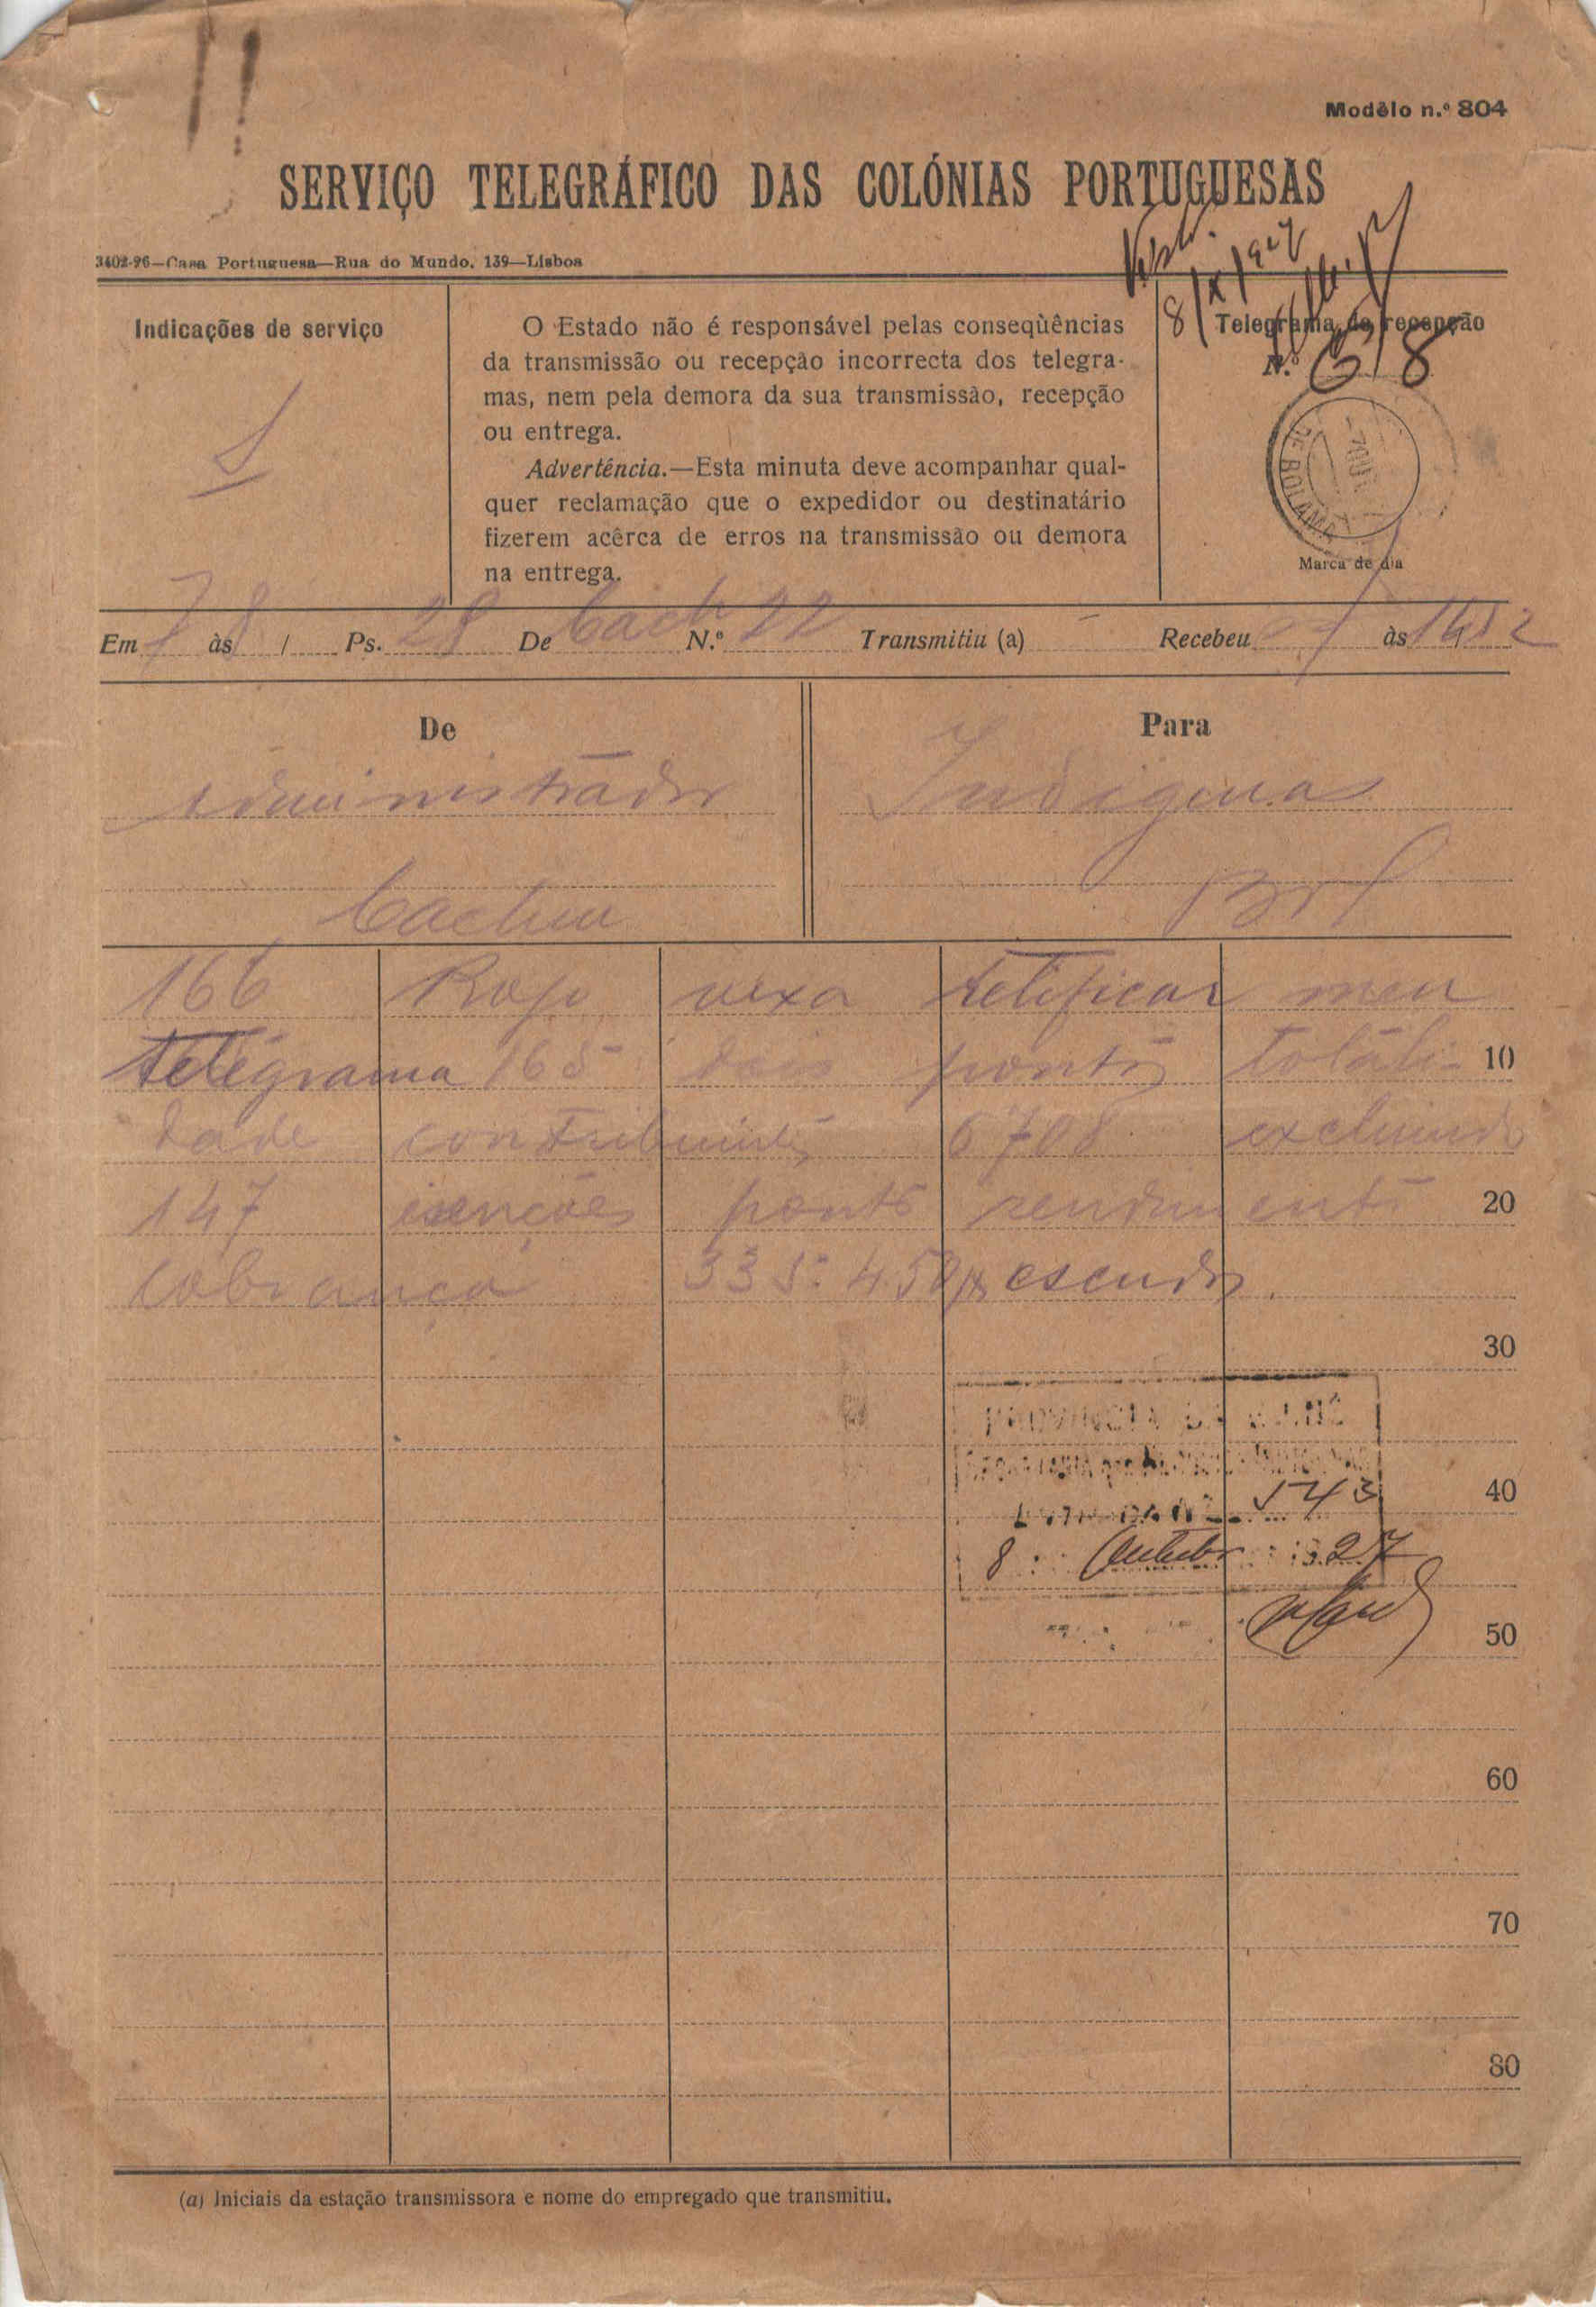 Modêlo n.º 804
SERVIÇO TELEGRÁFICO DAS COLÓNIAS PORTUGUESAS
3402-26—Casa Portuguesa—Rua do Mundo, 139—Lisboa
8/X/927
Indicações de serviço
O Estado não é responsável pelas conseqùências
da transmissão ou recepção incorrecta dos telegra-
mas, nem pela demora da sua transmissão, recepção
ou entrega.
Advertência.—Esta minuta deve acompanhar qual-
quer reclamação que o expedidor ou destinatário
fizerem acêrca de erros na transmissão ou demora
na entrega.
Telegrama de recepção
N.º 618
DE BOLAMA
Marca de dia
Em 7 às 8 / Ps. 28 De Cach N.º 22 Transmitiu (a) Recebeu às 1452
De
Para
Administrador
Indigenas
Cacheu
166 Rogo vexa retificar meu
telegrama 165 dois pontos totali- 10
dade contribuintes 6708 excluindo
147 isenções ponto rendimento 20
cobrança 335:458 escudos
30
PROVINCIA DA GUINÉ
40
543
8 Outubro 1927
50
60
70
80
(a) Iniciais da estação transmissora e nome do empregado que transmitiu.